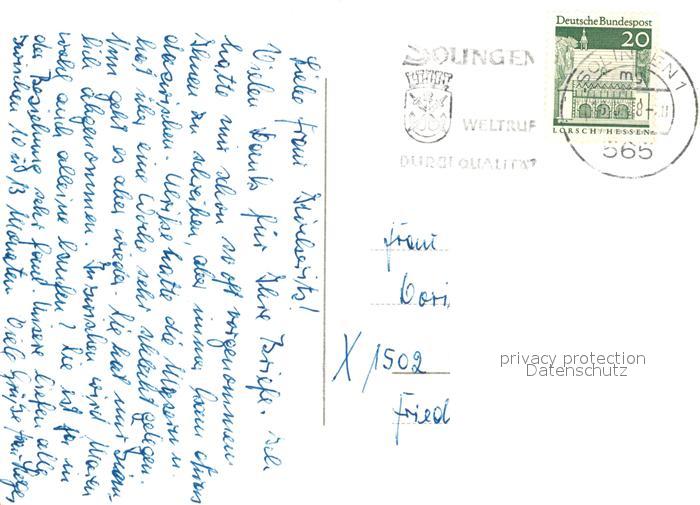 Liebe Frau
Vielen Dank für Ihre Briefe. Ich
hatte mir schon so oft vorgenommen
Ihnen zu schreiben, aber immer kam etwas
dazwischen. Ulrike hatte die Masern u.
hat über eine Woche sehr schlecht gelegen.
Nun geht es aber wieder. Sie hat nur
abgenommen. Inzwischen wird
wohl auch alleine laufen? Sie ist ja in
der Beziehung sehr faul. Unsere liefen alle
zwischen 10 u. 13 Monaten. Viele Grüße
SOLINGEN
WELTRUF
DURCH QUALITÄT
Deutsche Bundespost
20
LORSCH/HESSEN
SOLINGEN 1
565
Frau
Dori
X/1502
Fried
privacy protection
Datenschutz